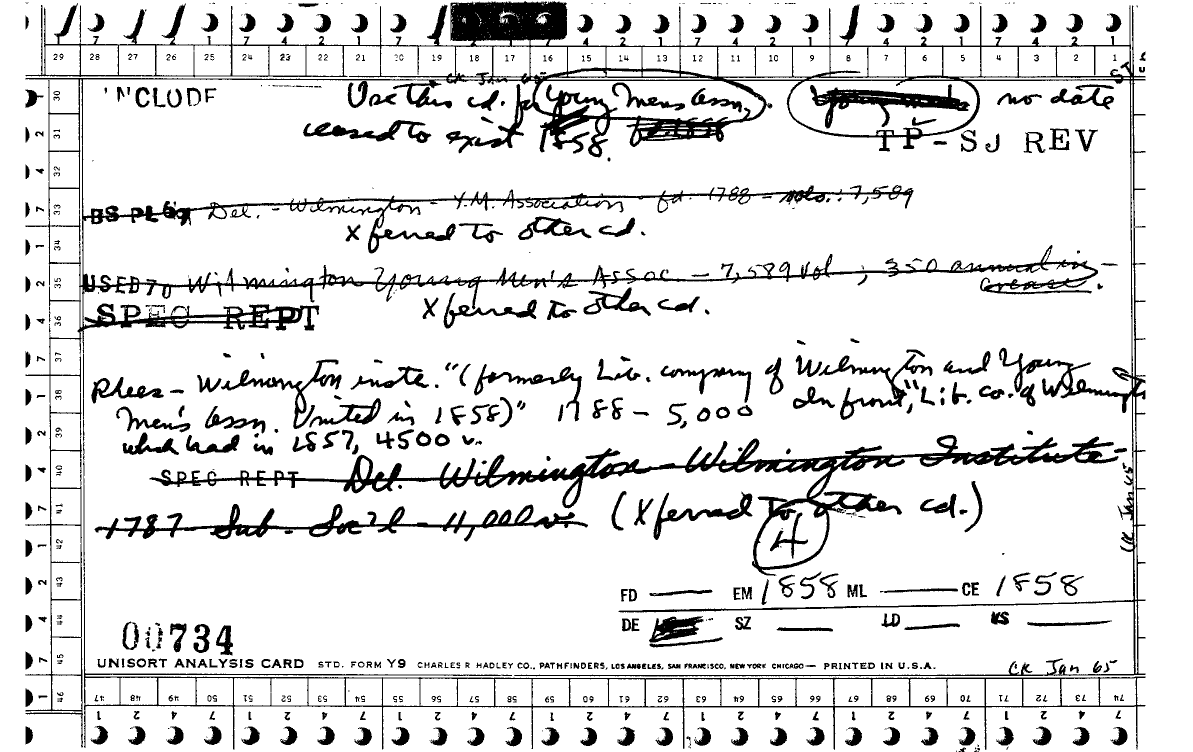 7 4 2 1 7 4 2 1 7 4 2 1 7 4 2 1 7 4 2 1
29 28 27 26 25 24 23 22 21 20 19 18 17 16 15 14 13 12 11 10 9 8 7 6 5 4 3 2 1
CK Jan 65
INCLUDE Use this cd. for Young Mens Assn. no date
ceased to exist 1858. fd. 1858
TP-SJ REV
BS PL 69 Del. - Wilmington - Y.M. Association - fd. 1788 - vols.: 7,589
Xferred to other cd.
USED 70 Wilmington Young Men's Assoc. - 7,589 vol; 350 annual in-
crease.
SPEC REPT Xferred to other cd.
Rhees - Wilmington insta. "(formerly Lib. company of Wilmington and Young
Men's Assn. United in 1858)" 1788 - 5,000 In front, "Lib. co. of Wilmington
which had in 1857, 4500 v.
SPEC REPT Del. - Wilmington - Wilmington Institute -
1787 - Sub - Soc'l - 11,000 v. (Xferred to other cd.)
4
CK Jan 65
FD EM 1858 ML CE 1858
DE SZ LD KS
00734
UNISORT ANALYSIS CARD STD. FORM Y9 CHARLES R HADLEY CO., PATHFINDERS, LOS ANGELES, SAN FRANCISCO, NEW YORK CHICAGO — PRINTED IN U.S.A.
CK Jan 65
30 31 32 33 34 35 36 37 38 39 40 41 42 43 44 45 46
47 48 49 50 51 52 53 54 55 56 57 58 59 60 61 62 63 64 65 66 67 68 69 70 71 72 73 74